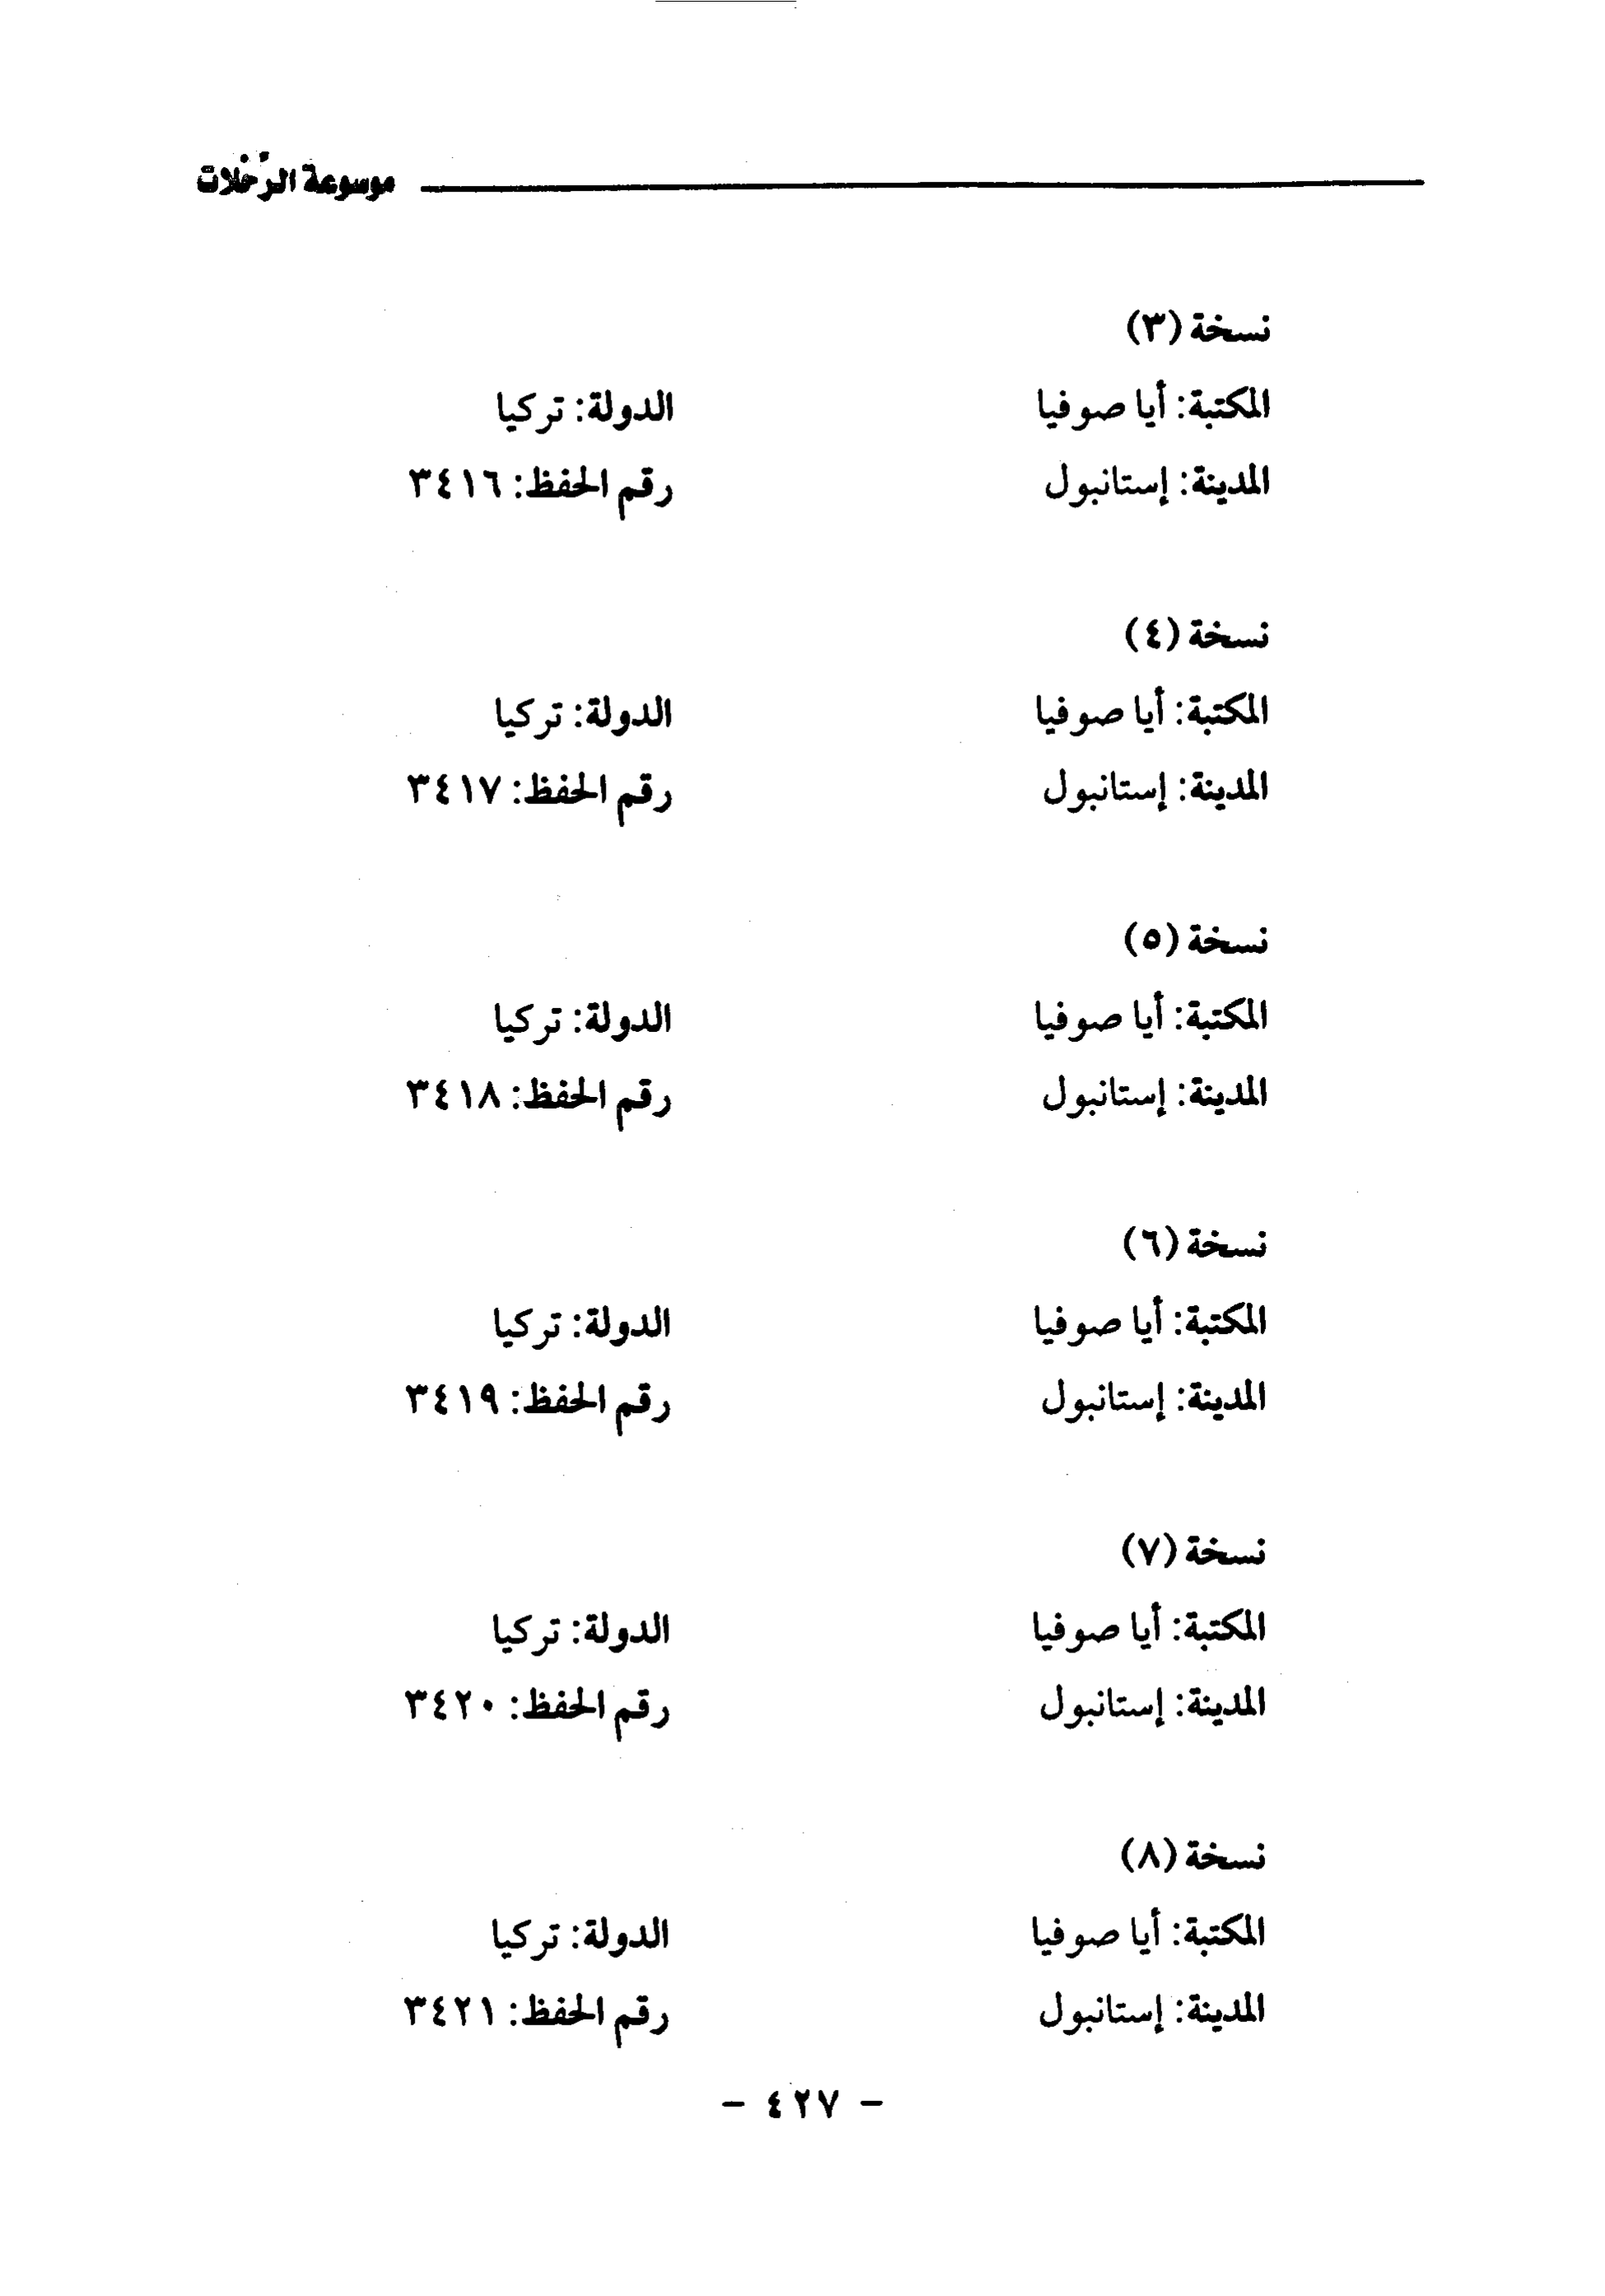 موسوعة الرّحلات
نسخة (٣)
المكتبة: أيا صوفيا الدولة: تركيا
المدينة: إستانبول رقم الحفظ: ٣٤١٦
نسخة (٤)
المكتبة: أيا صوفيا الدولة: تركيا
المدينة: إستانبول رقم الحفظ: ٣٤١٧
نسخة (٥)
المكتبة: أيا صوفيا الدولة: تركيا
المدينة: إستانبول رقم الحفظ: ٣٤١٨
نسخة (٦)
المكتبة: أيا صوفيا الدولة: تركيا
المدينة: إستانبول رقم الحفظ: ٣٤١٩
نسخة (٧)
المكتبة: أيا صوفيا الدولة: تركيا
المدينة: إستانبول رقم الحفظ: ٣٤٢٠
نسخة (٨)
المكتبة: أيا صوفيا الدولة: تركيا
المدينة: إستانبول رقم الحفظ: ٣٤٢١
- ٤٢٧ -